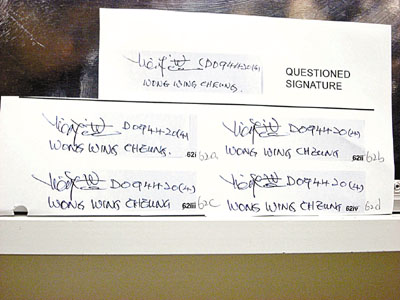 D094420(4)
QUESTIONED
SIGNATURE
WONG WING CHEUNG.
D094420(4)
WONG WING CHEUNG.
62i 62a
D094420(4)
WONG WING CHEUNG
62ii 62b
D094420(4)
WONG WING CHEUNG
62iii 62c
D094420(4)
WONG WING CHEUNG
62iv 62d